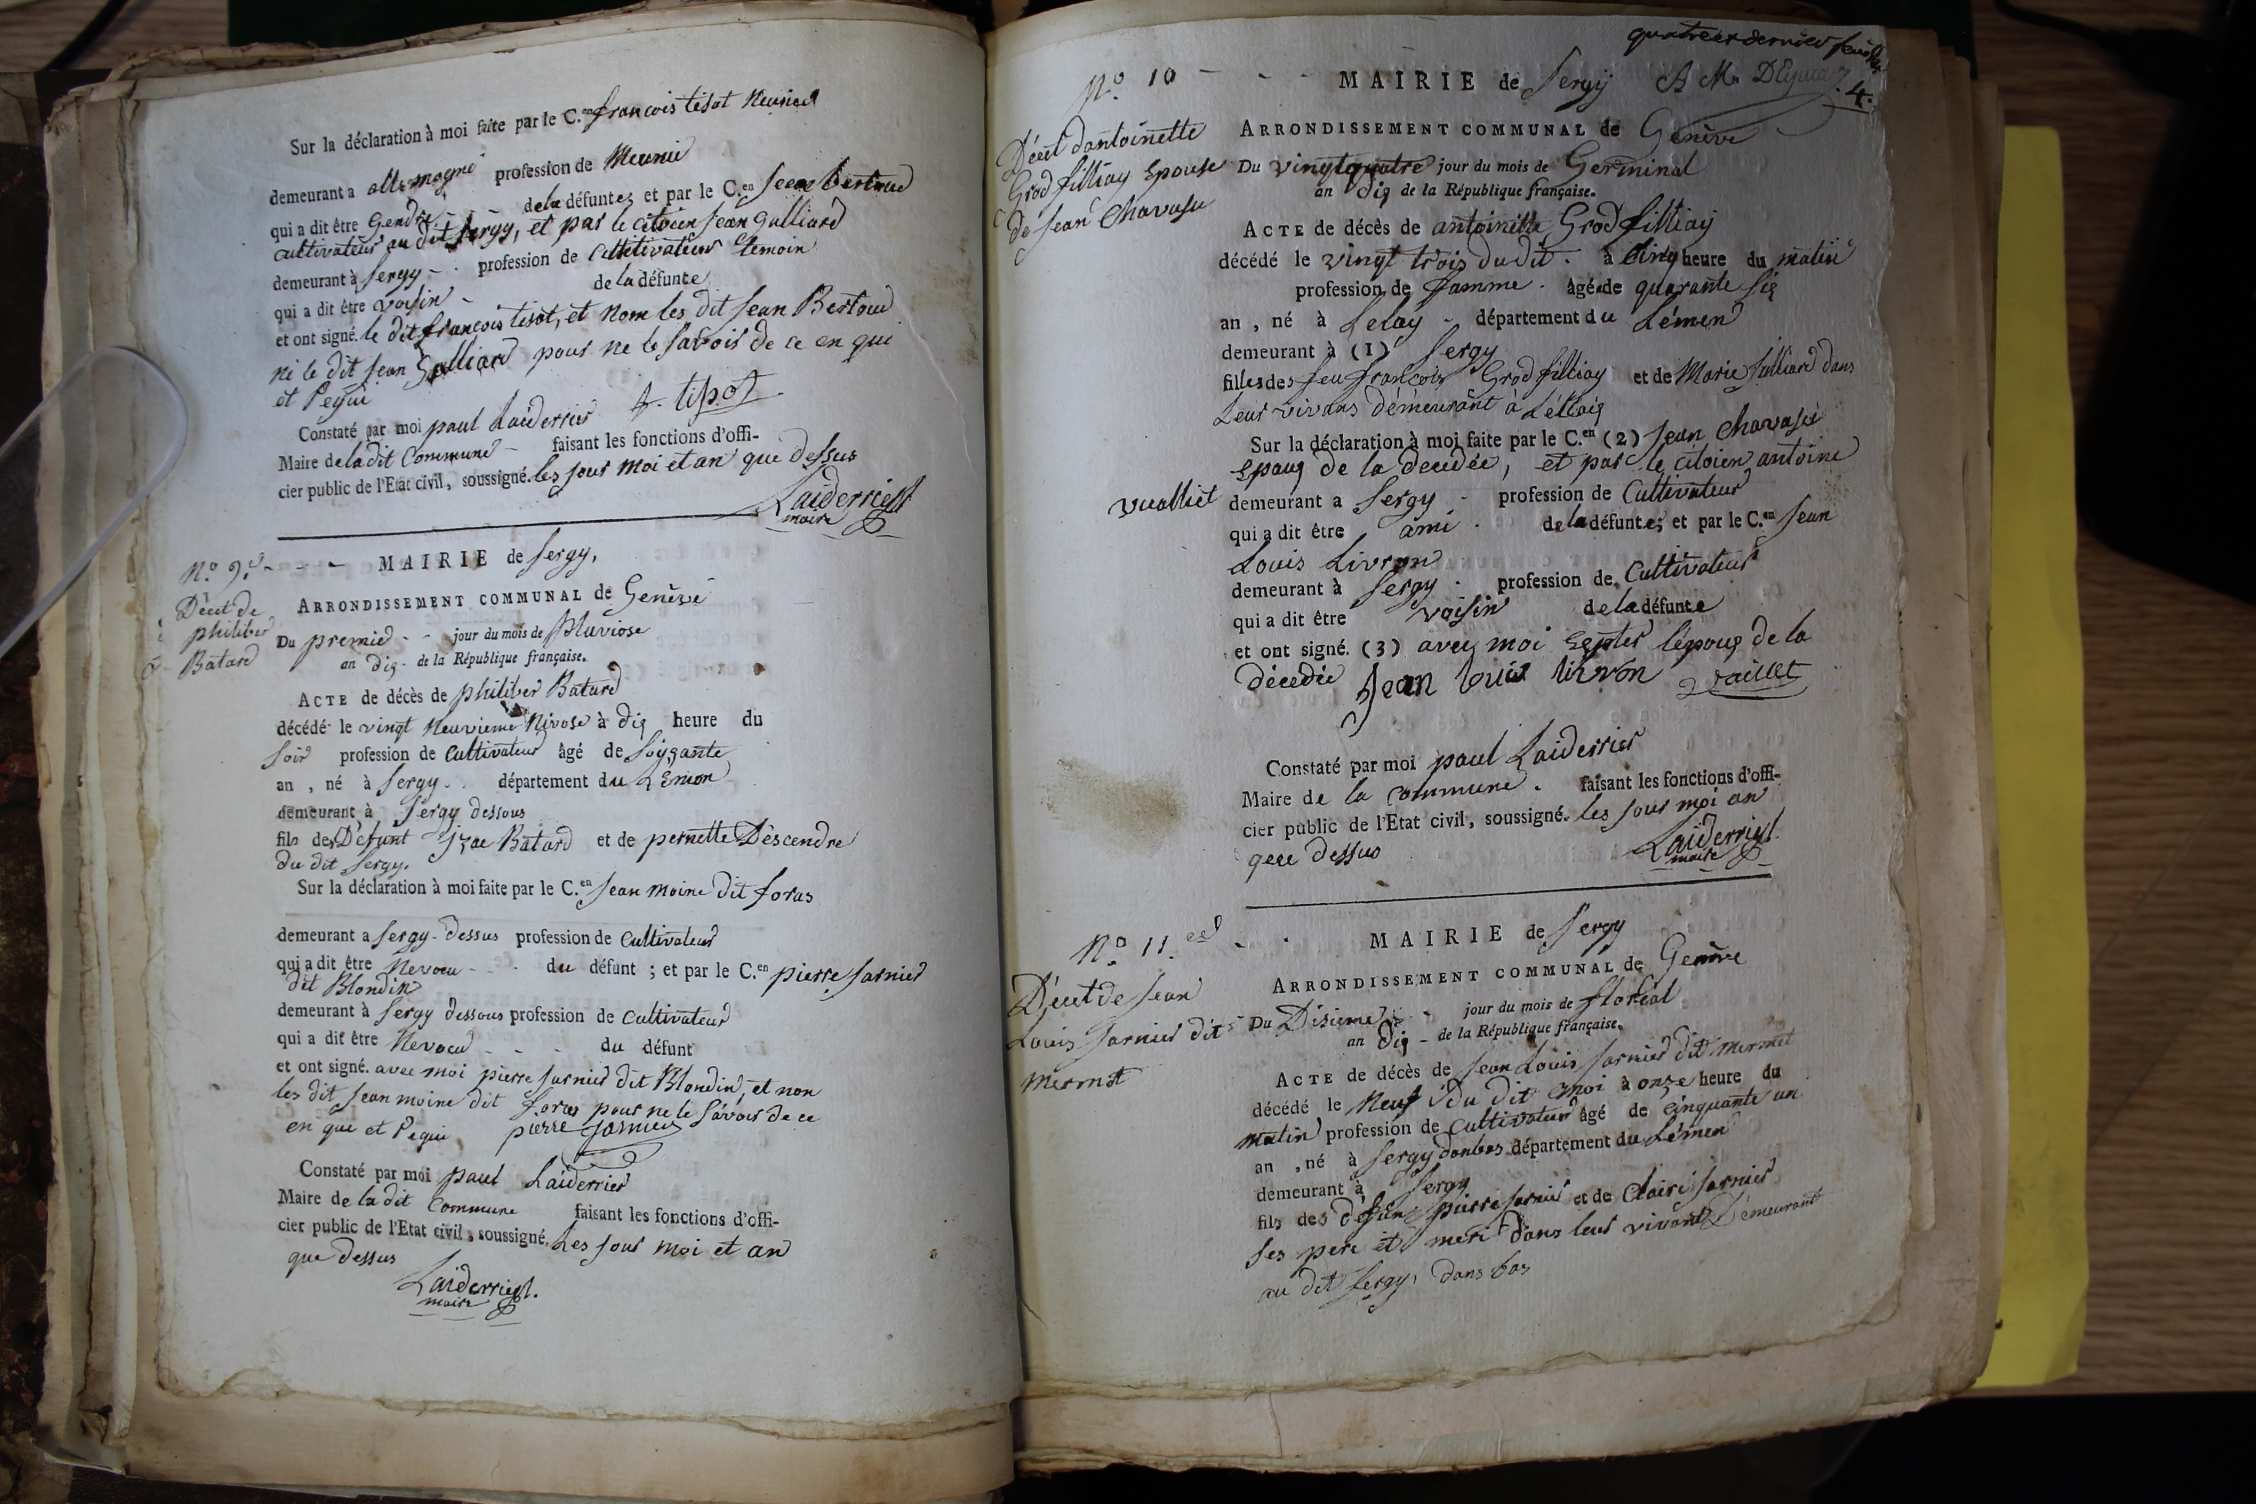 Sur la déclaration à moi faite par le C.en francois tisot Meunier
demeurant a allemogne profession de Meunié
qui a dit être Gendre dela défunte; et par le C.en Jean bertoud
cultivateur au dit Sergy, et par le citoien Jean Galliard
demeurant à Sergy - profession de Cultivateur temoin
qui a dit être voisin - de la défunte
et ont signé. le dit francois tisot, et nom les dit Jean Bertoud
ni le dit Jean Galliard pour ne le savoir de ce en qui
et Pequi
F. tisot
Constaté par moi paul Laiderrier
Maire dela dit Commune - faisant les fonctions d'offi-
cier public de l'Etat civil, soussigné. les jour moi et an que dessus
Laiderrier
maire
N.o 9. - - - MAIRIE de Sergy,
Décet de
philiber
Batard
ARRONDISSEMENT COMMUNAL de Genève
Du premier - - jour du mois de Pluviose
an dix - de la République française.
ACTE de décès de philiber Batard
décédé le vingt Neuvieme Nivose à dix heure du
soir profession de Cultivateur âgé de soixante
an , né à Sergy . département du Lémon
demeurant à Sergy dessous
fils des Défunt Izac Batard et de pernette Descendre
du dit Sergy.
Sur la déclaration à moi faite par le C.en Jean moine dit foras
demeurant a Sergy-dessus profession de Cultivateur
qui a dit être Neveu - - du défunt ; et par le C.en pierre Jarnier
dit Blondin
demeurant à Sergy dessous profession de Cultivateur
qui a dit être Neveu - - - du défunt
et ont signé. avec moi pierre Jarnier dit Blondin, et non
les dit Jean moine dit foras pour ne le savoir de ce
en qui et Pequi pierre Jarnier
Constaté par moi paul Laiderrier
Maire de la dit Commune faisant les fonctions d'offi-
cier public de l'Etat civil, soussigné. Les jour moi et an
que dessus
Laiderrier
maire
quatre et dernier feuillet
4.
N.o 10 - - - MAIRIE de Sergy
Décet dantoinette
Grod filliay Epouse
de Jean Chavasu
ARRONDISSEMENT COMMUNAL de Genève
Du vingtquatre jour du mois de Germinal
an dix de la République française.
ACTE de décès de antoinette Grod filliay
décédé le vingt trois du dit . à Cinq heure du matin
profession de famme . âgé de quarante six
an , né à Lelay - département du Lémen
demeurant à (1) Sergy
filles des feu francois Grod filliay et de Marie Julliard dans
Leur vivans démeurant à Lellaix
Sur la déclaration à moi faite par le C.en (2) Jean Chavasu
Epoux de la decedée, et par le citoien antoine
vualliet demeurant a Sergy - profession de Cultivateur
qui a dit être ami . de la défunte; et par le C.en Jean
Louis Livron
demeurant à Sergy . profession de Cultivateur
qui a dit être voisin de la défunte
et ont signé. (3) avec moi Septer lépoux de la
décedée Jean louis livron vaillet
Constaté par moi paul Laiderrier
Maire de la commune . faisant les fonctions d'offi-
cier public de l'Etat civil, soussigné. les jour moi an
que dessus
Laiderrier
maire
N.o 11. - . MAIRIE de Sergy
Décet de Jean
Louis Jarnier dit
Mermet
ARRONDISSEMENT COMMUNAL de Genève
Du Disieme - - jour du mois de floréal
an dix - de la République française.
ACTE de décès de Jean Louis Jarnier dit Mermet
décédé le Neuf du dit moi à onze heure du
matin profession de Cultivateur âgé de Cinquante un
an , né à Sergy danbas département du Lémen
demeurant à Sergy
fils des defunt pierre Jarnier et de Claire Jarnier
ses pere et mere dans leur vivant Demeurant
au dit Sergy, dans bas